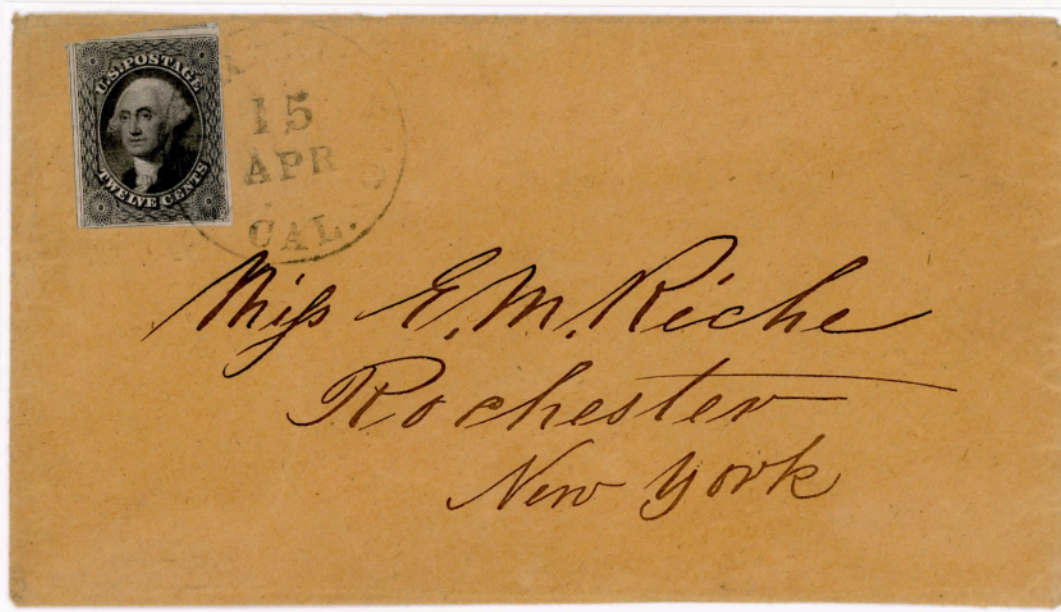 U.S. POSTAGE
TWELVE CENTS
15
APR
CAL.
Miss E. M. Riche
Rochester
New York